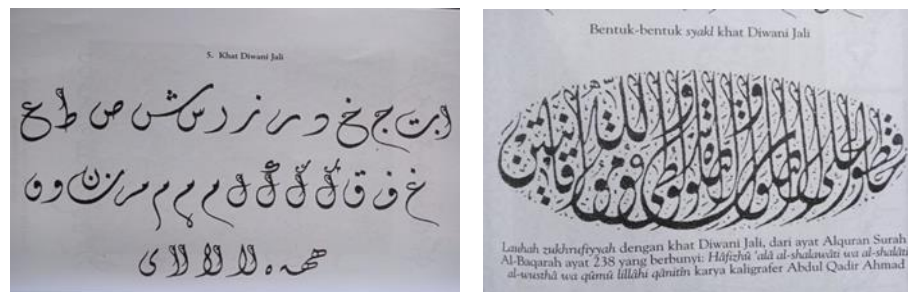 5. Khat Diwani Jali
ا ب ت ج خ د ر ز ر س ش ص ط ع
غ ف ق ل م م م م ن و ن
ه لا لا لا ى
Bentuk-bentuk syakl khat Diwani Jali
حافظوا على الصلوات والصلاة الوسطى وقوموا لله قانتين
Lauhah zukhrufiyyah dengan khat Diwani Jali, dari ayat Alquran Surah
Al-Baqarah ayat 238 yang berbunyi: Hâfizhû 'alâ al-shalawâti wa al-shalâti
al-wusthâ wa qûmû lillâhi qânitîn karya kaligrafer Abdul Qadir Ahmad